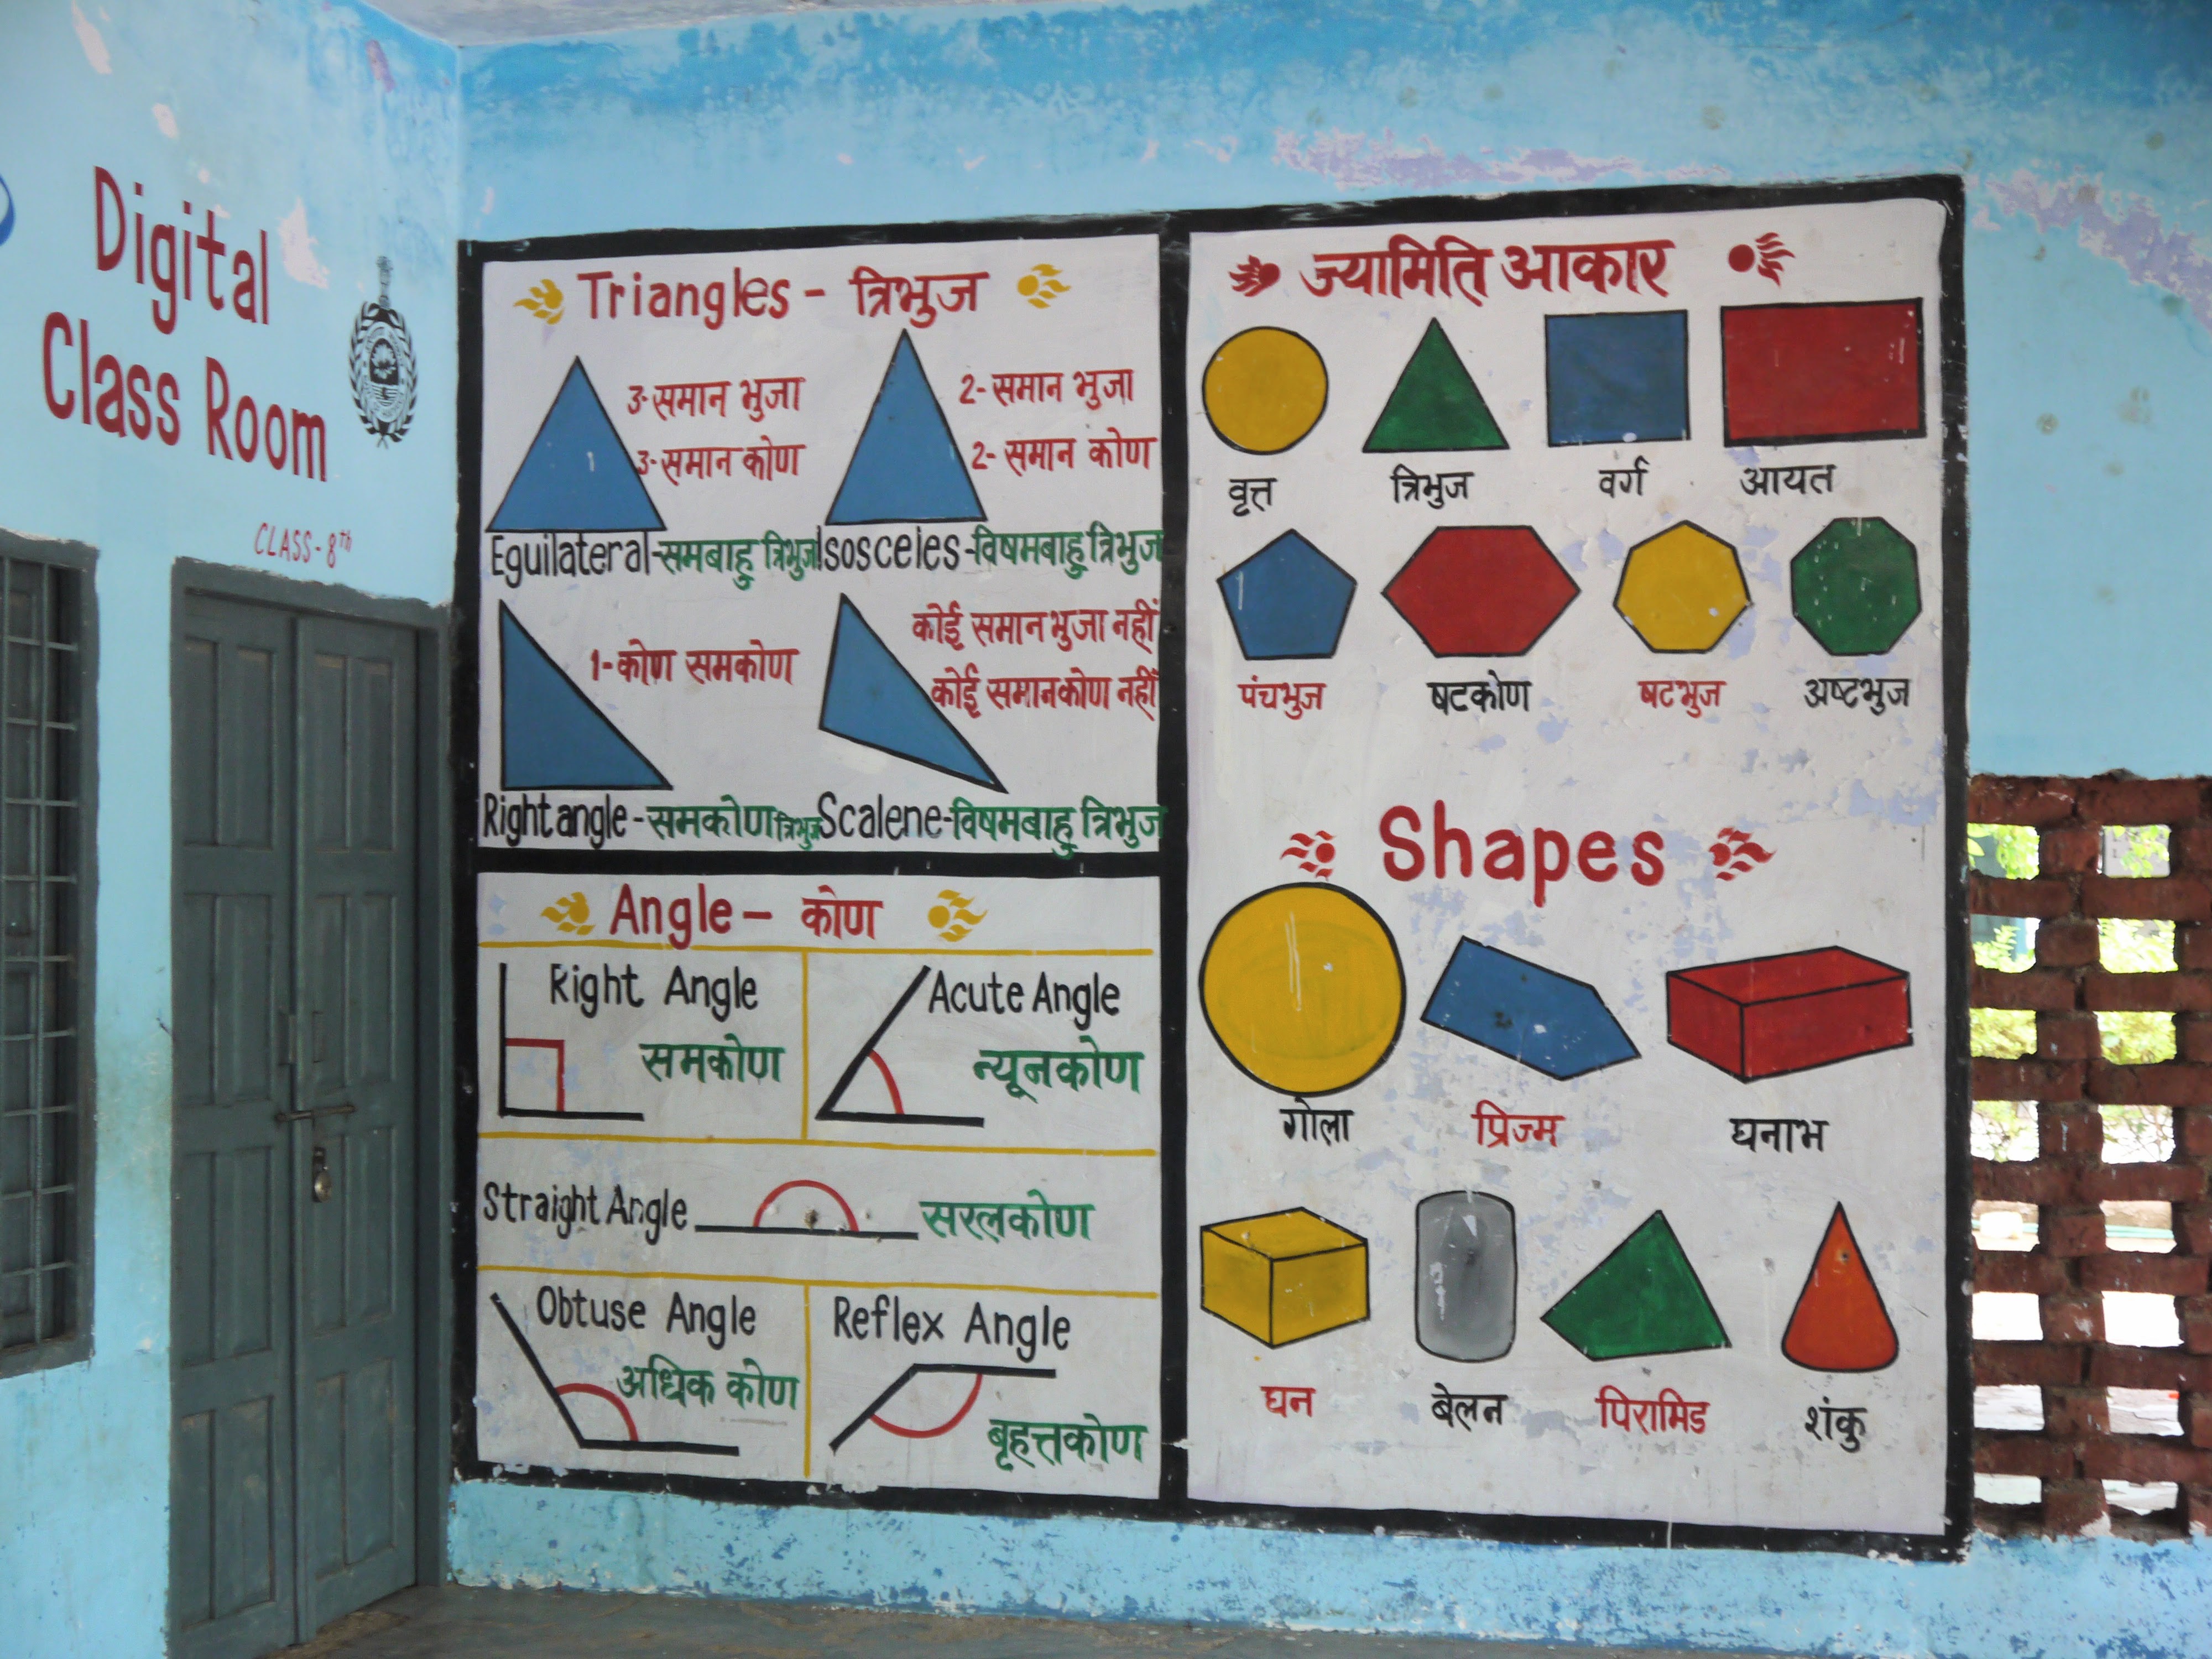 Digital
Class Room
CLASS-8th
Triangles - त्रिभुज
3-समान भुजा
3-समान कोण
Eguilateral-समबाहु त्रिभुज
2- समान भुजा
2- समान कोण
Isosceles-विषमबाहु त्रिभुज
1-कोण समकोण
Right angle-समकोण त्रिभुज
कोई समान भुजा नहीं
कोई समान कोण नहीं
Scalene-विषमबाहु त्रिभुज
Angle- कोण
Right Angle
समकोण
Acute Angle
न्यूनकोण
Straight Angle सरलकोण
Obtuse Angle
अधिक कोण
Reflex Angle
बृहत्तकोण
ज्यामिति आकार
वृत्त त्रिभुज वर्ग आयत
पंचभुज षटकोण षटभुज अष्टभुज
Shapes
गोला प्रिज्म घनाभ
घन बेलन पिरामिड शंकु